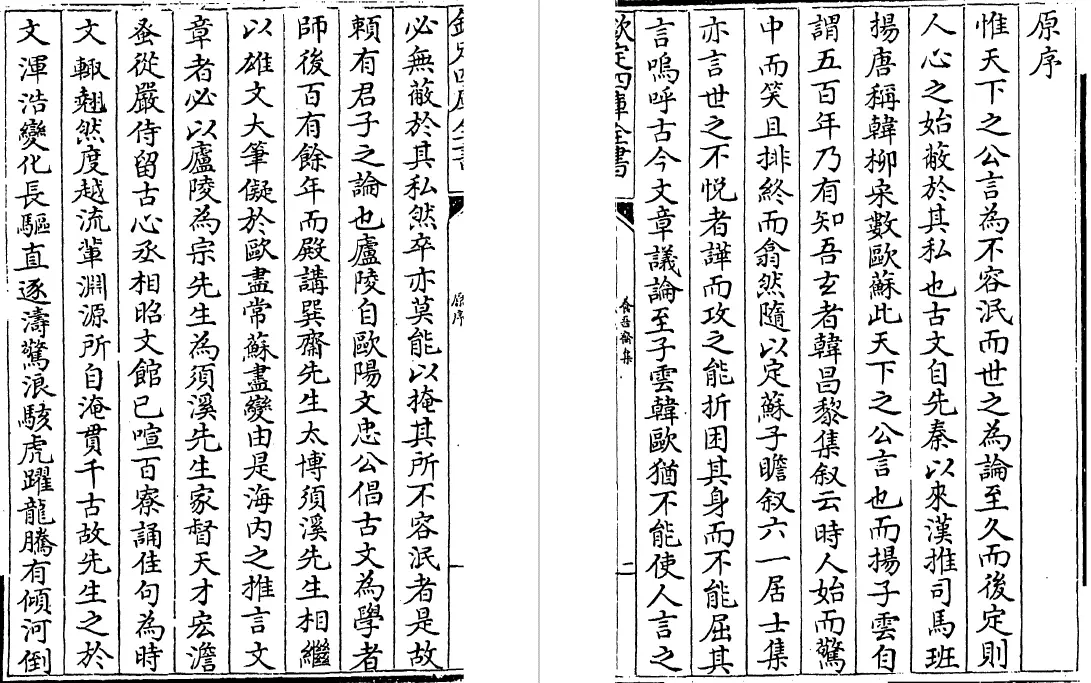 原序
惟天下之公言為不容泯而世之為論至久而後定則
人心之始蔽於其私也古文自先秦以來漢推司馬班
揚唐稱韓柳宋數歐蘇此天下之公言也而揚子雲自
謂五百年乃有知吾玄者韓昌黎集叙云時人始而驚
中而笑且排終而翕然隨以定蘇子瞻叙六一居士集
亦言世之不悦者譁而攻之能折困其身而不能屈其
言嗚呼古今文章議論至子雲韓歐猶不能使人言之
欽定四庫全書
養吾齋集
二
欽定四庫全書
原序
必無蔽於其私然卒亦莫能以掩其所不容泯者是故
頼有君子之論也廬陵自歐陽文忠公倡古文為學者
師後百有餘年而殿講巽齋先生太博須溪先生相繼
以雄文大筆儗於歐盡常蘇盡變由是海内之推言文
章者必以廬陵為宗先生為須溪先生家督天才宏澹
蚤從嚴侍留古心丞相昭文館已喧百寮誦佳句為時
文輙翹然度越流輩淵源所自淹貫千古故先生之於
文渾浩變化長驅直逐濤驚浪駭虎躍龍騰有傾河倒